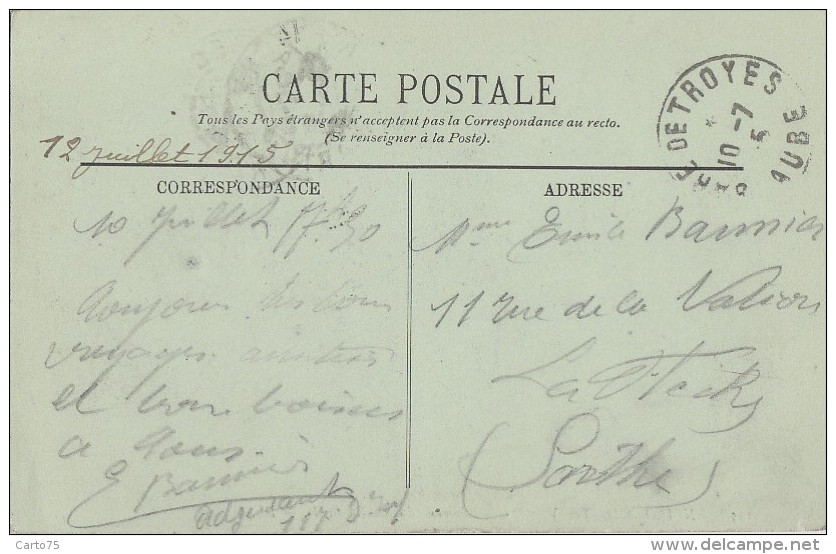 CARTE POSTALE
Tous les Pays étrangers n'acceptent pas la Correspondance au recto.
(Se renseigner à la Poste).
GARE DE TROYES
10 - 7
AUBE
12 juillet 1915
CORRESPONDANCE
10 juillet
Toujours très bon
voyage
et bons baisers
a tous.
E Barnier
adjudant
117
ADRESSE
Mme Emile Barnier
11 rue de la
La Flèche
(Sarthe)
Carto75
www.delcampe.net